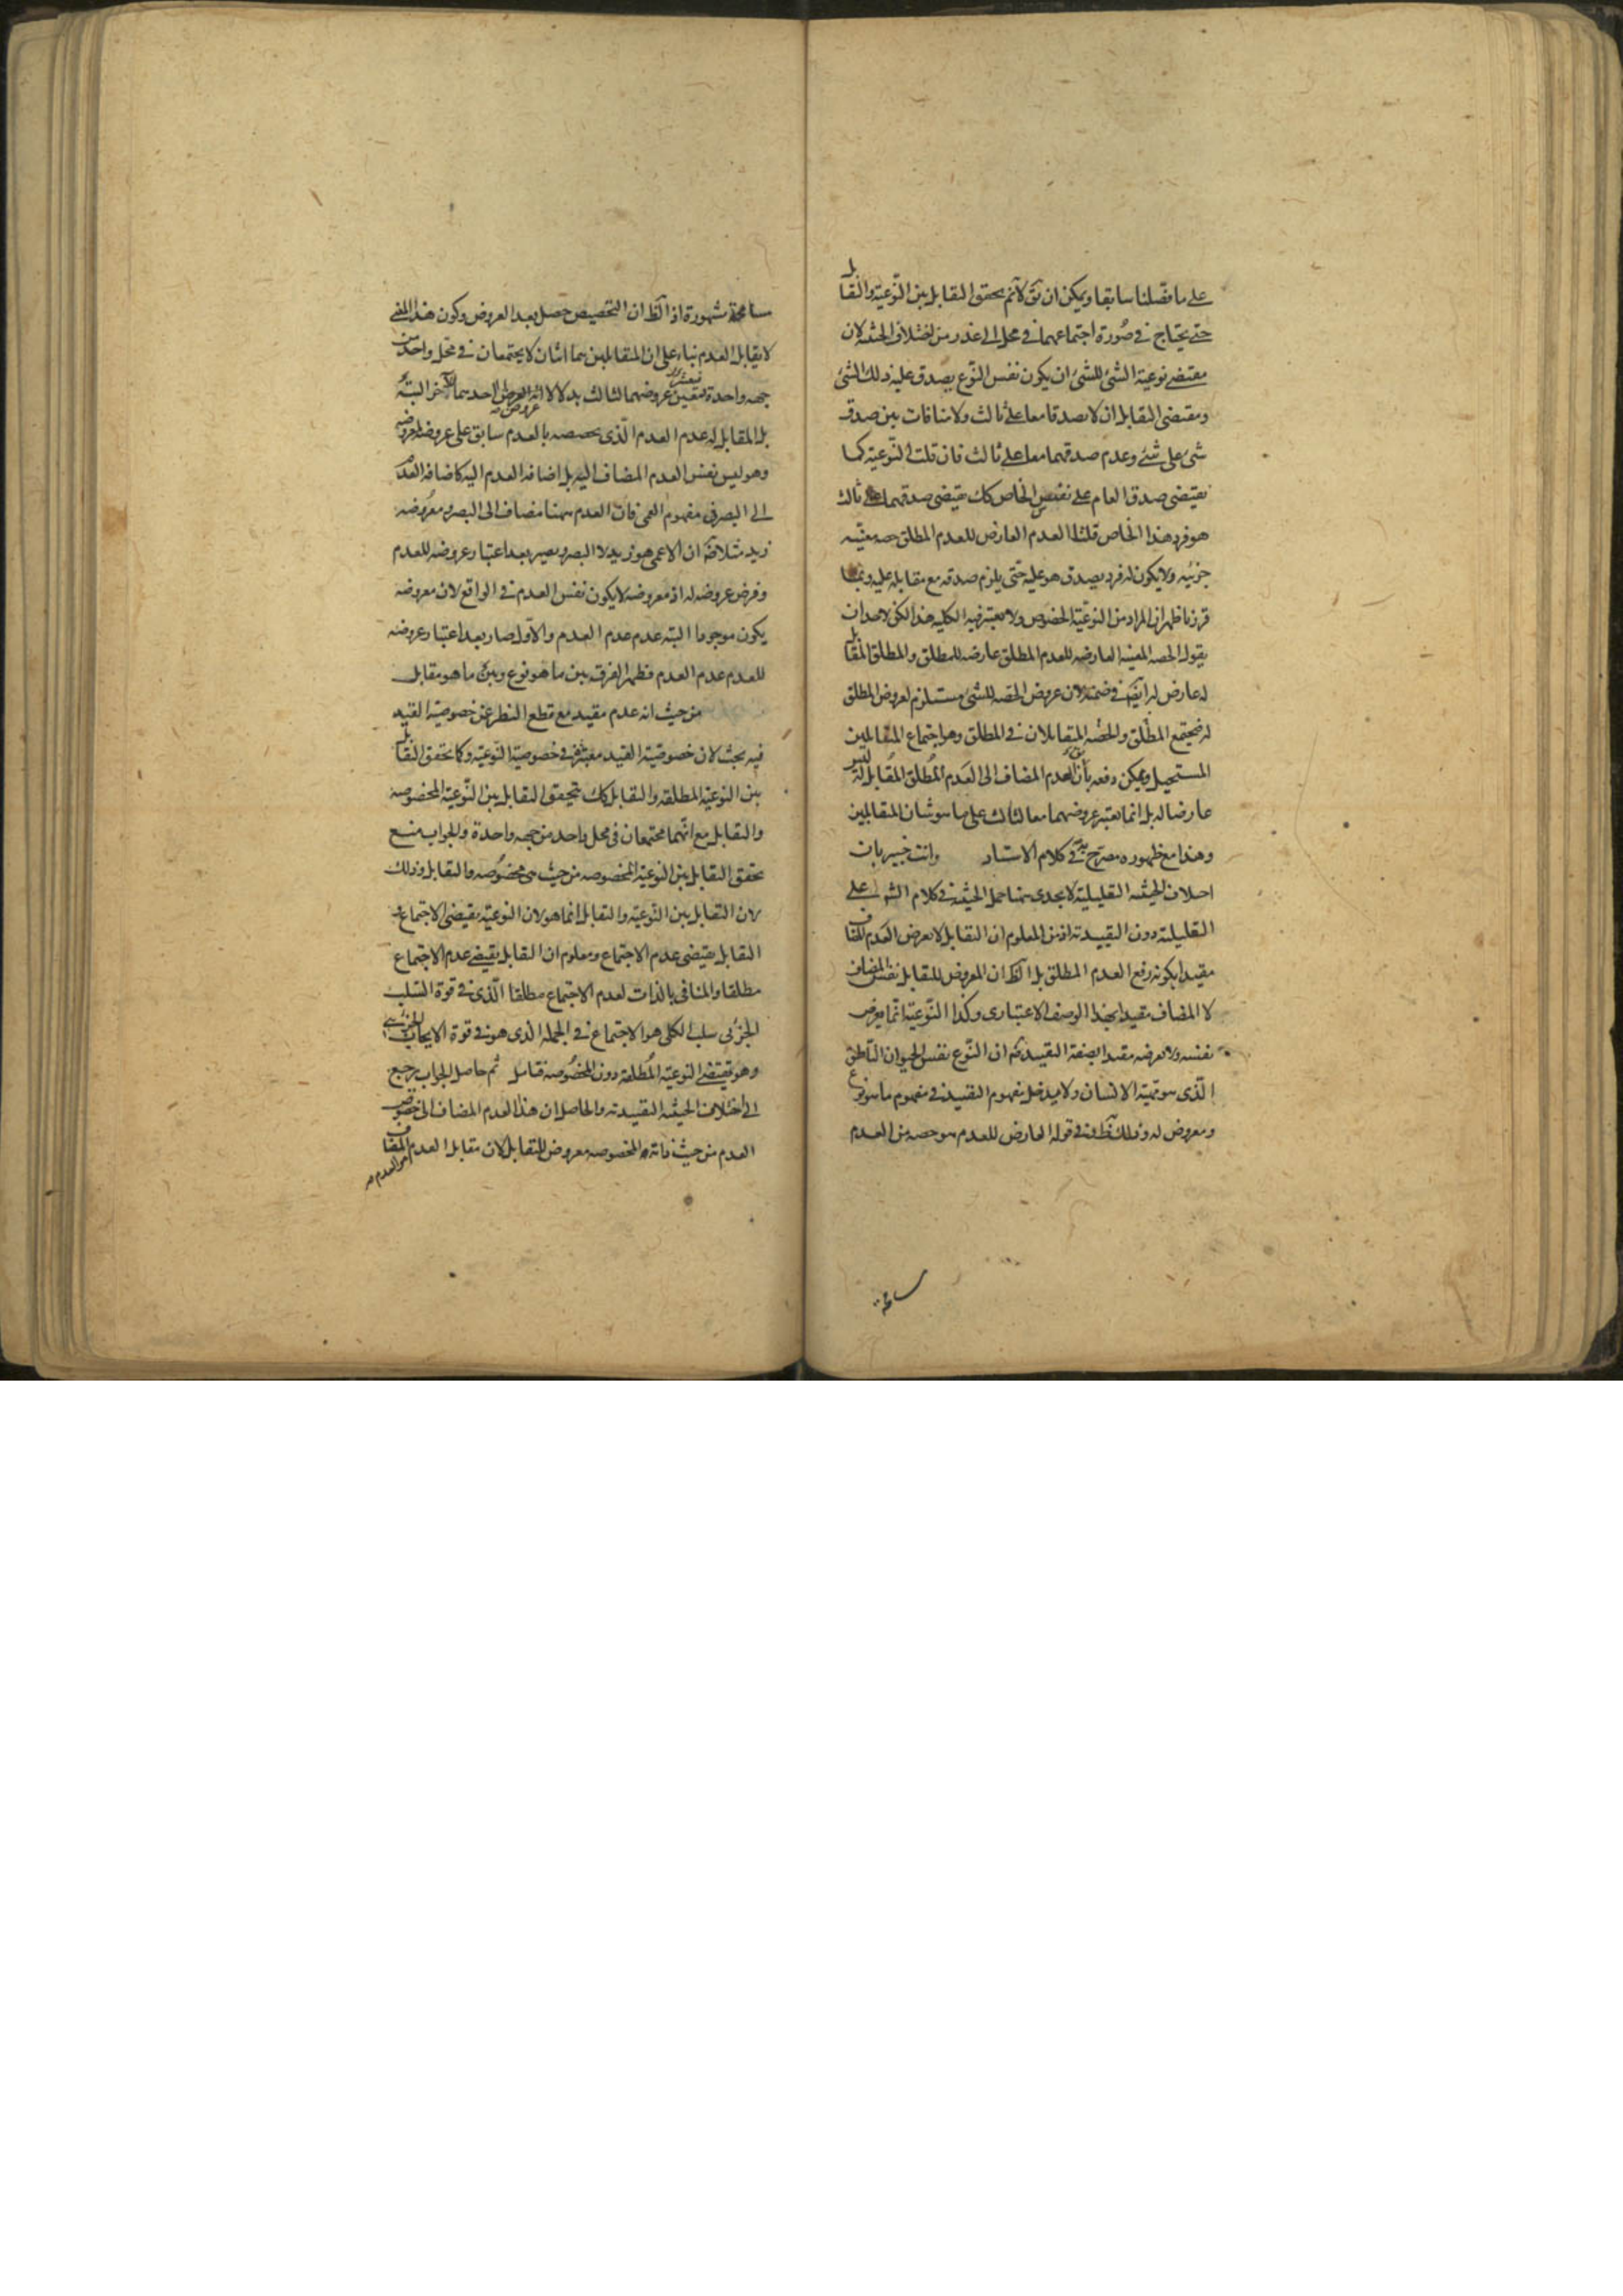 على ما فصلنا سابقا ويمكن ان يق لانم تحقق التقابل بين النوعية والتقابل
حتى يحتاج في صورة اجتماعهما في محل الى عذر من اختلاف الحيثية لان
مقتضى نوعية الشئ للشئ ان يكون نفس النوع يصدق عليه ذلك الشئ
ومقتضى التقابل ان لا يصدقا معا على ثالث ولا منافات بين صدق
شئ على شئ وعدم صدقهما معا على ثالث فان قلت النوعية كما
يقتضى صدق العام على نفس الخاص كك يقتضى صدقهما على ثالث
هو فرد هذا الخاص قلنا العدم العارض للعدم المطلق حصه معينه
جزئيه ولا يكون له فرد يصدق هو عليه حتى يلزم صدقه مع مقابله عليه وبما
قررنا ظهر ان المراد من النوعية الخصوص ولا يعتبر فيه الكليه هذا لكن لاحد ان
يقول الحصه المعينه العارضه للعدم المطلق عارضه للمطلق والمطلق المقابل
له عارض له ايضا في ضمنه لان عروض الحصه للشئ مستلزم لعروض المطلق
له فيجتمع المطلق والحصه المتقابلان في المطلق وهو اجتماع المتقابلين
المستحيل ويمكن دفعه بان العدم المضاف الى العدم المطلق المقابل له ليس
عارضا له بل انما يعتبر عروضهما معا لثالث على ما هو شان المتقابلين
وهذا مع ظهوره مصرح به في كلام الاستاد وانت خبير بان
اختلاف الحيثيه التعليليه لا يجدى هنا حمل الحيثيه في كلام الش على
التعليليه دون التقييديه اذ من المعلوم ان التقابل لا يعرض العدم المضاف
مقيدا بكونه رفع العدم المطلق بل الظ ان المعروض للتقابل نفس المضاف
لا المضاف مقيدا بهذا الوصف الاعتبارى وكذا النوعية انما يعرض
نفسه ولا يعرضه مقيدا بصفة التقييد كما ان النوع نفس الحيوان الناطق
الذى هو مهية الانسان ولا مدخل لمفهوم التقييد في مفهوم ما هو نوع
ومعروض له وذلك ظ في قوله العارض للعدم هو حصه من العدم
مسامحة
مسامحة مشهورة اذ الظ ان التخصيص حصل بعد العروض وكون هذا المعنى
لا يقابل العدم بناء على ان المتقابلين هما اثنان لا يجتمعان في محل واحد من
جهه واحدة عروضهما لثالث بدلا لا احدهما الاخر البتة
بل المقابل له عدم العدم الذى تخصصه بالعدم سابق على عروضه لمعروضه
وهو ليس نفس العدم المضاف اليه بل اضافه العدم اليه كاضافه العدم
الى البصر في مفهوم العمى فان العدم ههنا مضاف الى البصر ومعروضه
زيد مثلا كما ان الاعمى هو زيد لا البصر ويعبر بعد اعتبار عروضه للعدم
وفرض عروضه له اذ معروضه لا يكون نفس العدم في الواقع لان معروضه
يكون موجودا البته عدم عدم العدم والاول صار بعد اعتبار عروضه
للعدم عدم العدم فظهر الفرق بين ما هو نوع وبين ما هو مقابل
من حيث انه عدم مقيد مع قطع النظر عن خصوصية القيد
فيه بحث لان خصوصية القيد معتبرة في خصوصية النوعية وكما تحقق التقابل
بين النوعية المطلقه والتقابل كك تحقق التقابل بين النوعية المخصوصه
والتقابل مع انهما مجتمعان في محل واحد من جهه واحدة والجواب منع
تحقق التقابل بين النوعية المخصوصه من حيث هى مخصوصه والتقابل وذلك
لان التقابل بين النوعية والتقابل انما هو لان النوعية يقتضى الاجتماع و
التقابل يقتضى عدم الاجتماع ومعلوم ان التقابل يقتضى عدم الاجتماع
مطلقا والمنافى بالذات لعدم الاجتماع مطلقا الذى في قوة السلب
الجزئى سلب الكلى هو الاجتماع في الجمله الذى هو في قوة الايجاب الجزئى
وهو مقتضى النوعية المطلقه دون المخصوصه فتامل ثم حاصل الجواب يرجع
الى اختلاف الحيثيه التقييديه والحاصل ان هذا العدم المضاف الى خصوص
العدم من حيث ذاته المخصوصه معروض للتقابل لان مقابل العدم المضاف
هو العدم صح